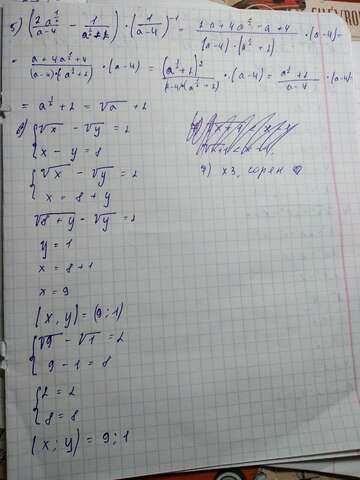 5) (2a^½/(a-4) - 1/(a^½+2)) · (1/(a-4))^-1 = (2a+4a^½-a+4)/((a-4)·(a^½+2)) · (a-4) =
= (a+4a^½+4)/((a-4)(a^½+2)) · (a-4) = (a^½+2)²/((a-4)(a^½+2)) · (a-4) = (a^½+2)/(a-4) · (a-4)
= a^½+2 = √a +2
6) { √x - √y = 2
x - y = 8
{ √x - √y = 2
x = 8 + y
7) х3, сорен
√8+y - √y = 2
y = 1
x = 8 + 1
x = 9
(x, y) = (9; 1)
{ √9 - √1 = 2
9 - 1 = 8
{ 2 = 2
8 = 8
(x; y) = 9; 1